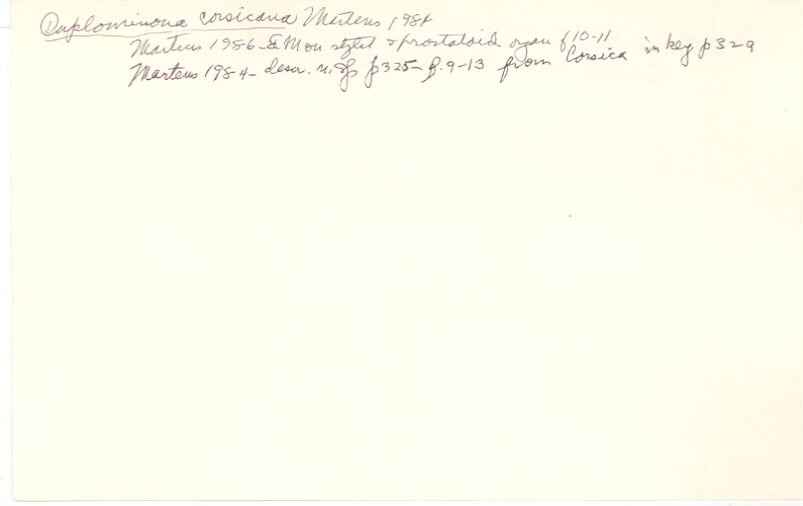 Duplominona corsicana Martens 1984
Martens 1986 - EM on stylet & prostatoid organ f 10-11
Martens 1984 - descr. n. sp p325 - f. 9-13 from Corsica in key p329